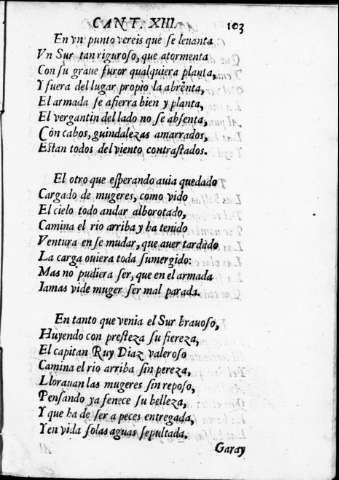 CANT. XIII. 103
En vn punto vereis que se leuanta
Vn Sur tan riguroso, que atormenta
Con su graue furor qualquiera planta,
Y fuera del lugar propio la abienta,
El armada se afierra bien y planta,
El vergantin del lado no se absenta,
Con cabos, guindalezas amarrados,
Estan todos del viento contrastados.
El otro que esperando auia quedado
Cargado de mugeres, como vido
El cielo todo andar alborotado,
Camina el rio arriba y ha tenido
Ventura en se mudar, que auer tardado
La carga ouiera toda sumergido:
Mas no pudiera ser, que en el armada
Iamas vide muger ser mal parada.
En tanto que venia el Sur brauoso,
Huyendo con presteza su fiereza,
El capitan Ruy Diaz valeroso
Camina el rio arriba sin pereza,
Llorauan las mugeres sin reposo,
Pensando ya fenece su belleza,
Y que ha de ser a peces entregada,
Y en vida solas aguas sepultada.
Garay